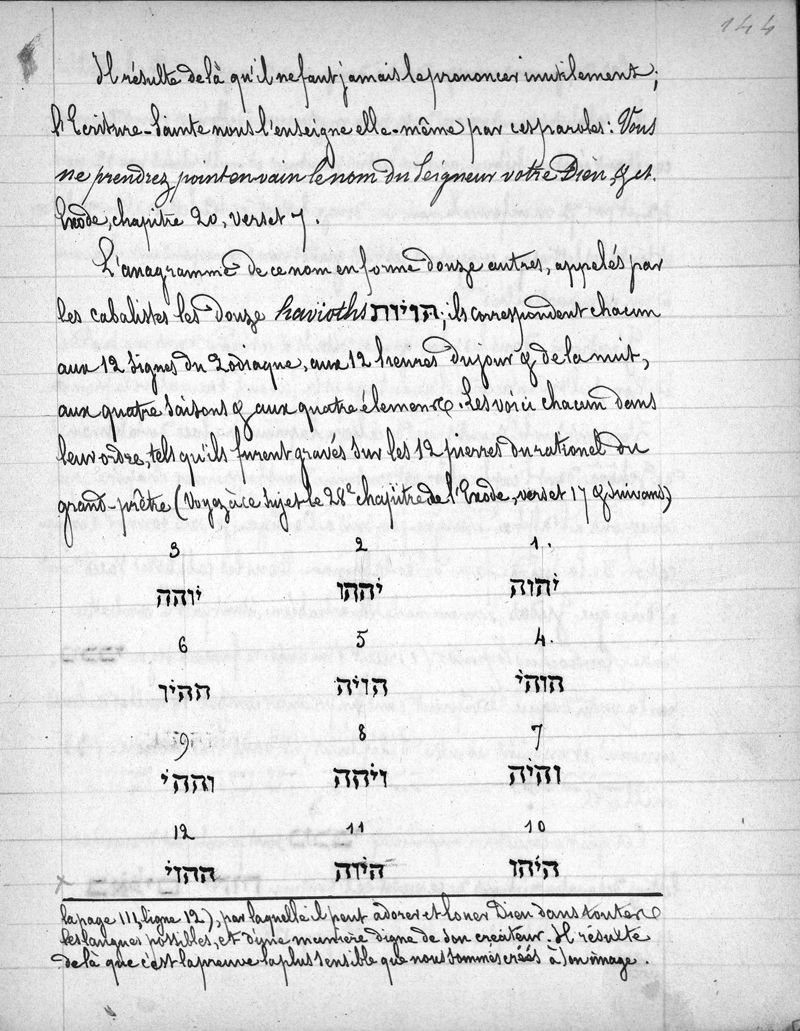 144
Il résulte de là qu'il ne faut jamais le prononcer inutilement;
l'Ecriture-Sainte nous l'enseigne elle-même par ces paroles: Vous
ne prendrez point en vain le nom du Seigneur votre Dieu, & et.
Exode, chapitre 20, verset 7.
L'anagramme de ce nom en forme douze autres, appelés par
les cabalistes les douze havioths הויות; ils correspondent chacun
aux 12 signes du Zodiaque, aux 12 heures du jour & de la nuit,
aux quatre saisons & aux quatre élemens. Les voici chacun dans
leur ordre, tels qu'ils furent gravés sur les 12 pierres du rational du
grand-prêtre (Voyez à ce sujet le 28e chapitre de l'Exode, verset 17 & suivans)
3 2 1.
יהוה יההו יוהה
6 5 4.
הוהי הויה ההיו
9 8 7
והיה ויהה וההי
12 11 10
היהו היוה ההוי
la page 111, ligne 12), par laquelle il peut adorer et louer Dieu dans toutes
les langues possibles, et d'une manière digne de son créateur. Il résulte
de là que c'est la preuve la plus sensible que nous sommes créés à son image.